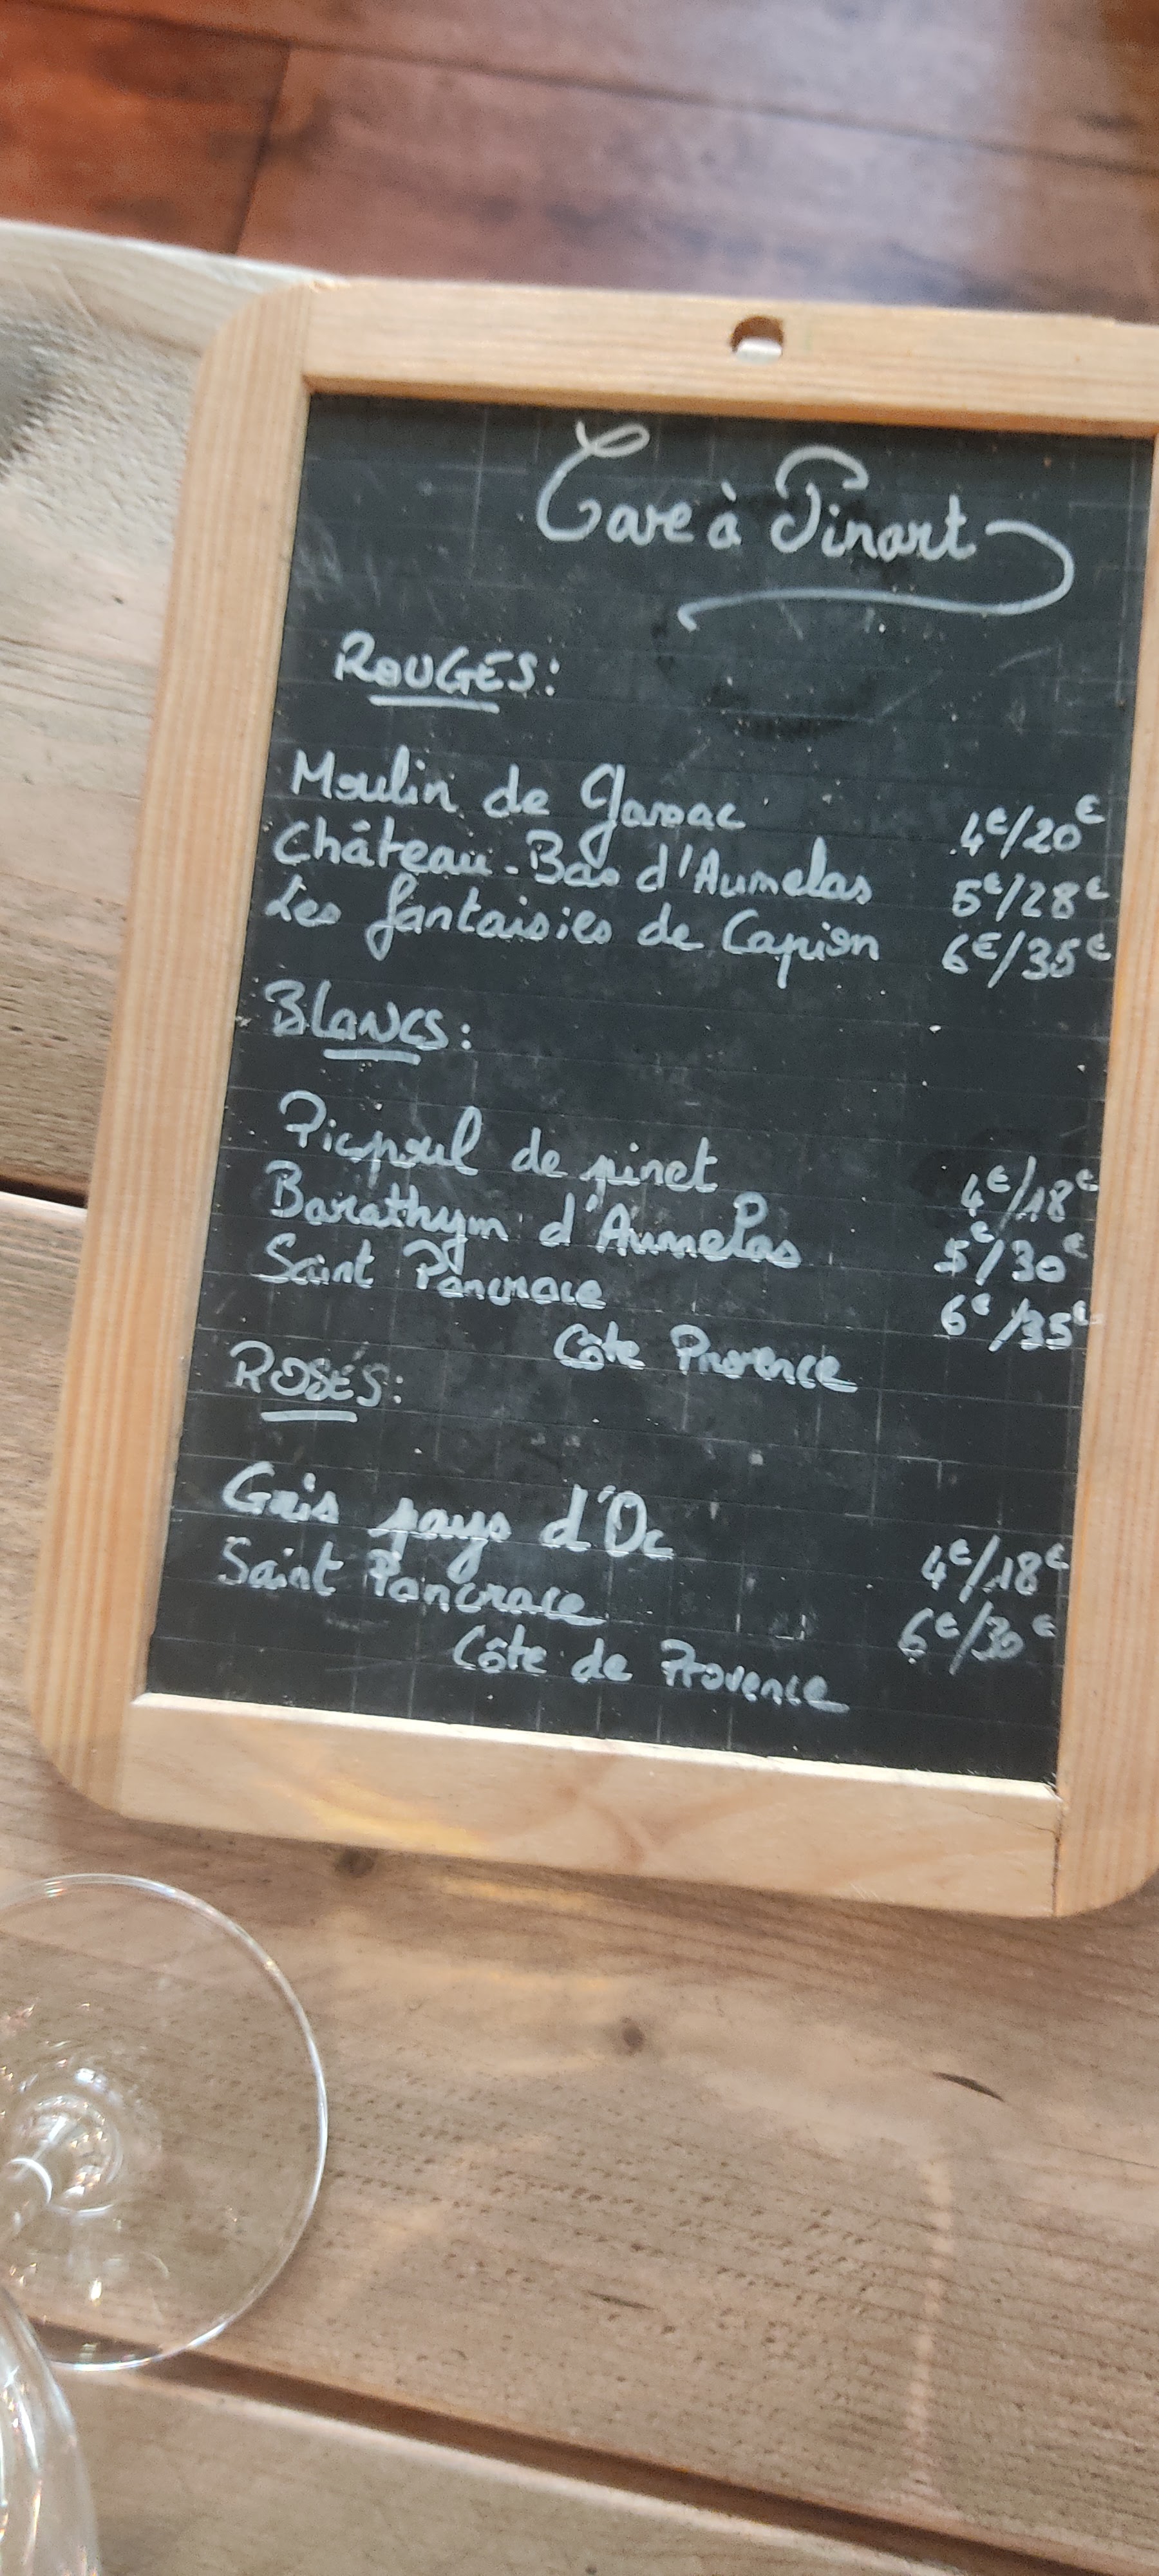 Cave à Pinart
ROUGES:
Moulin de Gassac 4€/20€
Château-Bas d'Aumelas 5€/28€
Les fantaisies de Capion 6€/35€
BLANCS:
Picpoul de pinet 4€/18€
Barathym d'Aumelas 5€/30€
Saint Pancrace 6€/35€
Côte Provence
ROSÉS:
Gris pays d'Oc 4€/18€
Saint Pancrace 6€/30€
Côte de Provence